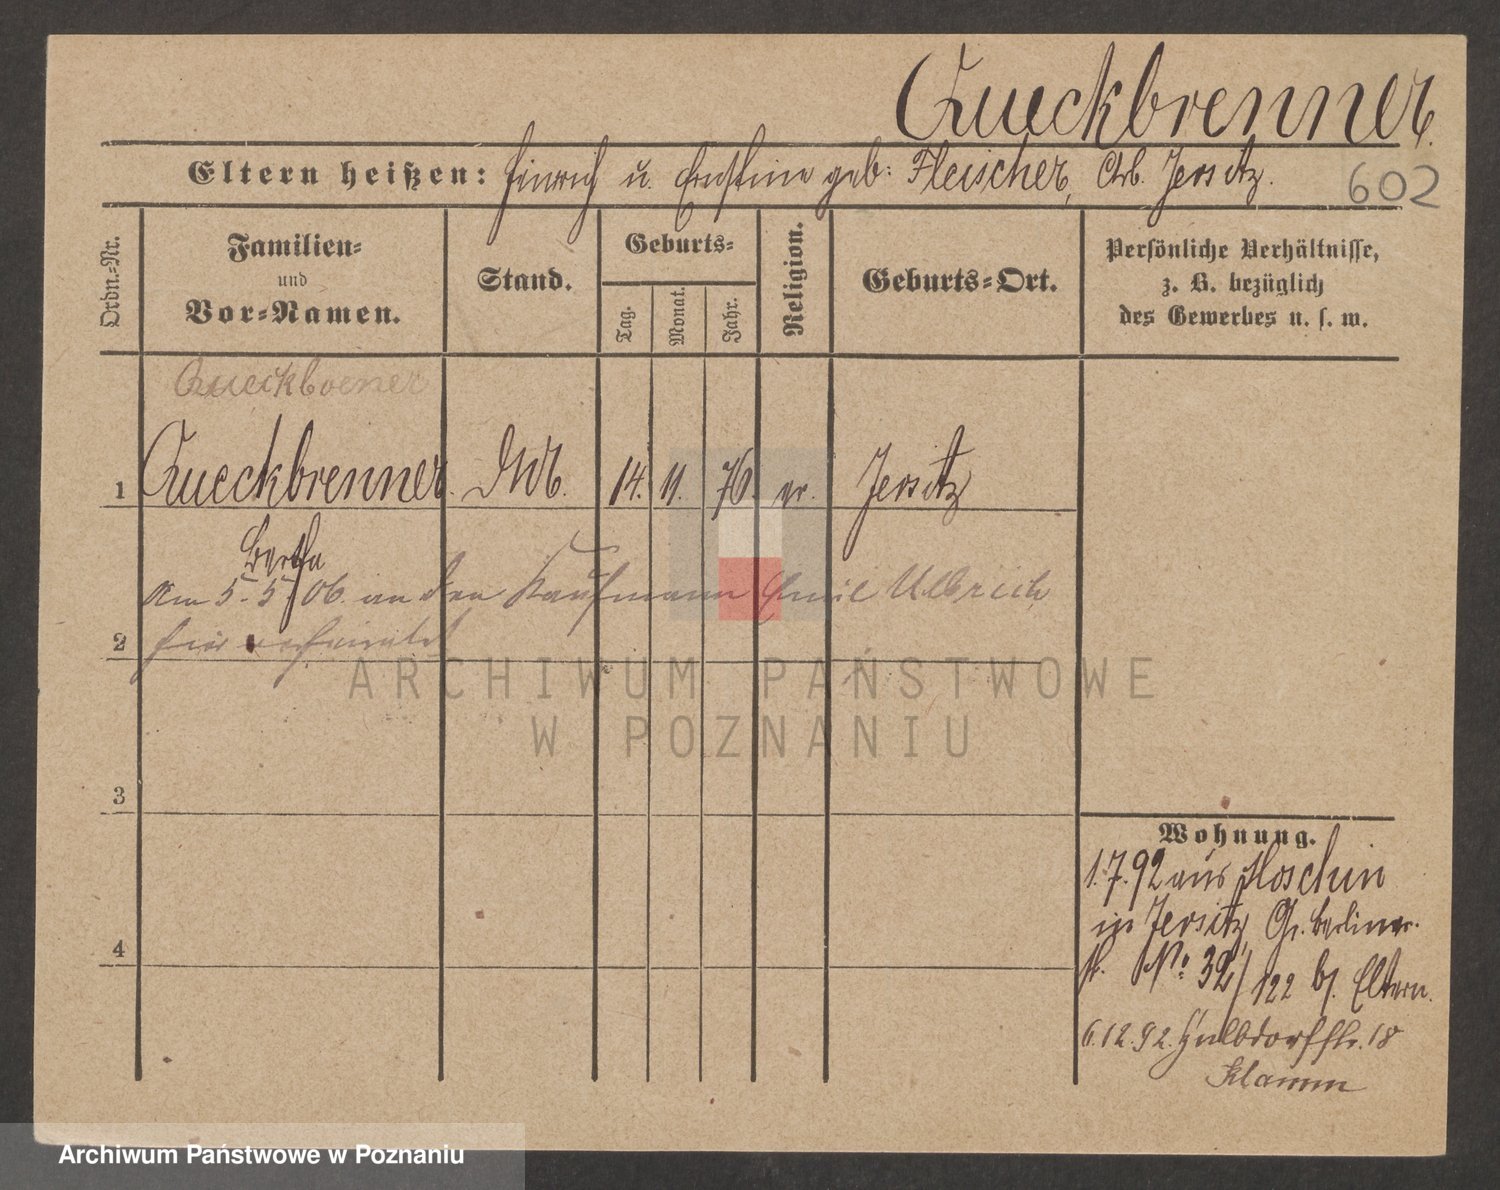 Queckbrenner.
Eltern heißen: Heinrich u. Ernstine geb: Fleischer, Arb. Jersitz.
602
Ordn.-Nr.
Familien-
und
Vor-Namen.
Stand.
Geburts-
Tag.
Monat.
Jahr.
Religion.
Geburts-Ort.
Persönliche Verhältnisse,
z. B. bezüglich
des Gewerbes u. s. w.
Queckboener
1 Queckbrenner. 14. 11. 76. ev. Jersitz
Bertha
Am 5.5.06. an den Kaufmann Emil Ulbrich
2 hier verheiratet
3
4
Wohnung.
1.7.92 aus Moschin
in Jersitz, Gr. Berliner-
str. No: 32/122 b. Eltern.
6.12.92. 18
Klamm
ARCHIWUM PAŃSTWOWE
W POZNANIU
Archiwum Państwowe w Poznaniu